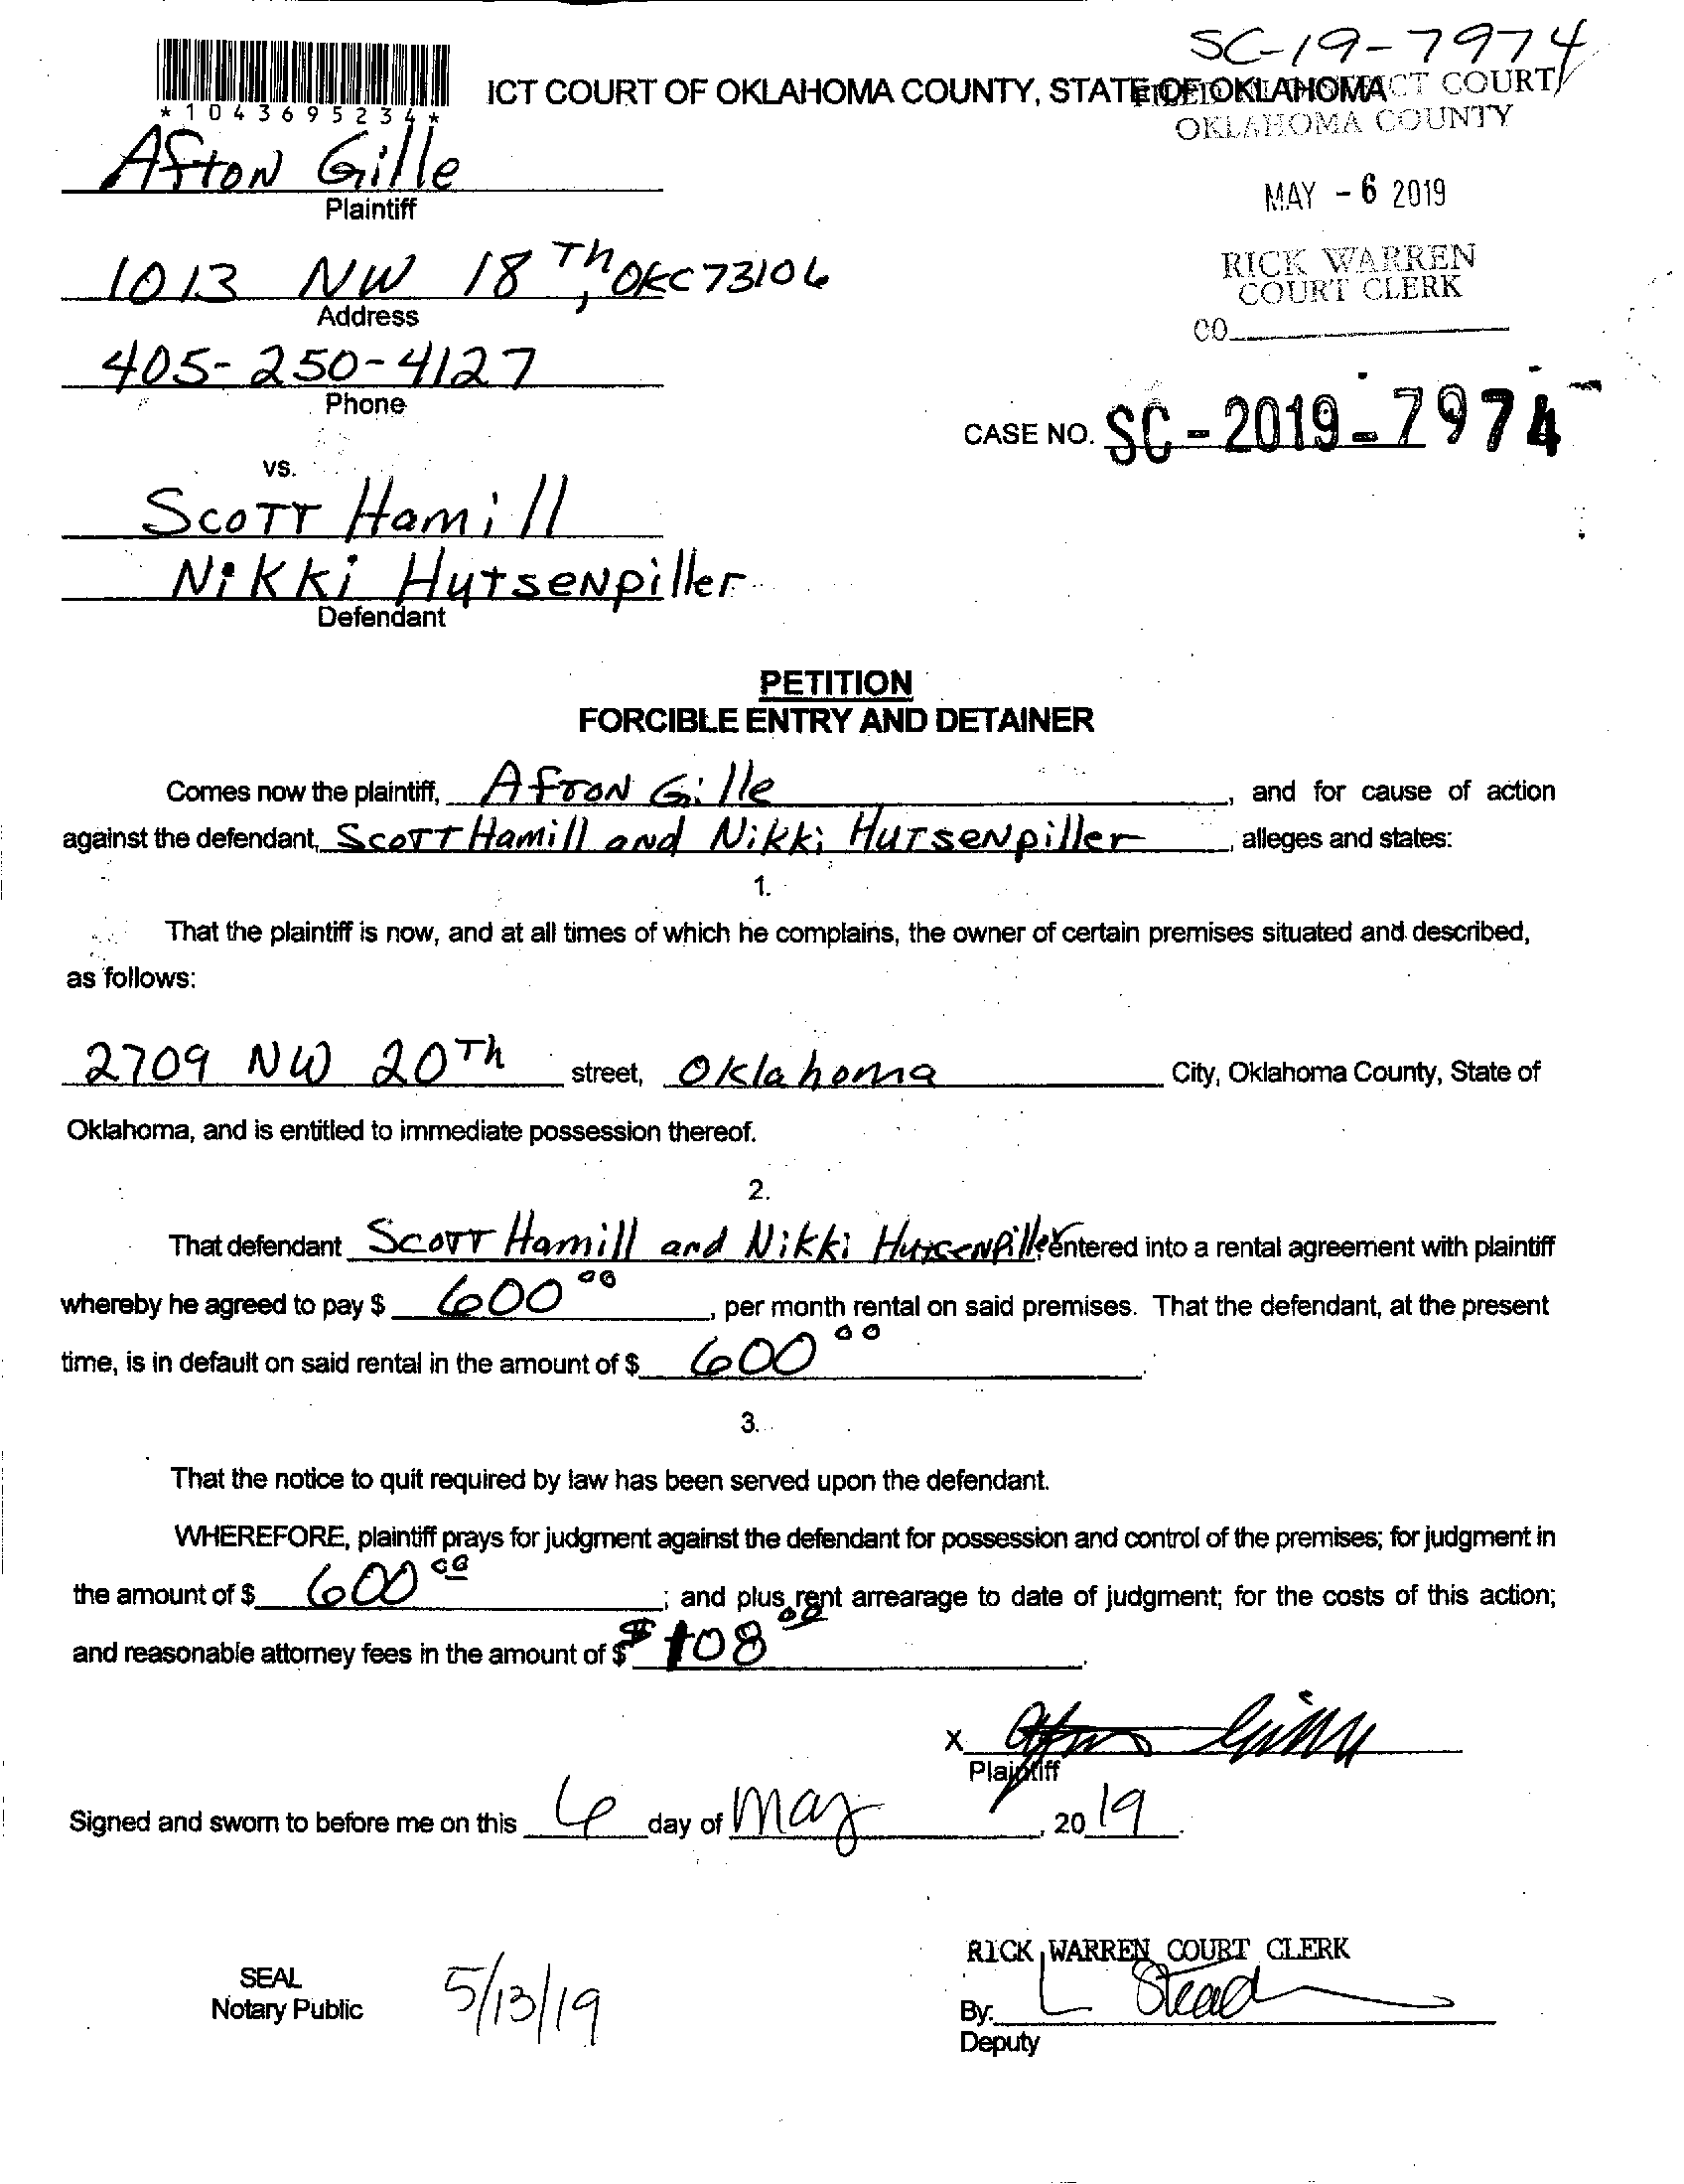 SC-19-7974
ICT COURT OF OKLAHOMA COUNTY, STATE OF OKLAHOMA
COURT
*1043695234*
OKLAHOMA COUNTY
Afton Gille
Plaintiff
MAY - 6 2019
1013 NW 18Th, OKC 73106
Address
RICK WARREN
COURT CLERK
405-250-4127
Phone
CASE NO. SC-2019-7974
vs.
Scott Hamill
Nikki Hutsenpiller
Defendant
PETITION
FORCIBLE ENTRY AND DETAINER
Comes now the plaintiff, Afton Gille, and for cause of action
against the defendant, Scott Hamill and Nikki Hutsenpiller, alleges and states:
1.
That the plaintiff is now, and at all times of which he complains, the owner of certain premises situated and described,
as follows:
2709 NW 20Th street, Oklahoma City, Oklahoma County, State of
Oklahoma, and is entitled to immediate possession thereof.
2.
That defendant Scott Hamill and Nikki Hutsenpiller entered into a rental agreement with plaintiff
whereby he agreed to pay $ 600 00, per month rental on said premises. That the defendant, at the present
time, is in default on said rental in the amount of $ 600 00.
3.
That the notice to quit required by law has been served upon the defendant.
WHEREFORE, plaintiff prays for judgment against the defendant for possession and control of the premises; for judgment in
the amount of $ 600 00; and plus rent arrearage to date of judgment; for the costs of this action;
and reasonable attorney fees in the amount of $ $108 00.
X Afton Gille
Plaintiff
Signed and sworn to before me on this 6 day of May, 2019.
RICK WARREN COURT CLERK
SEAL
Notary Public
5/13/19
By: L Stead
Deputy